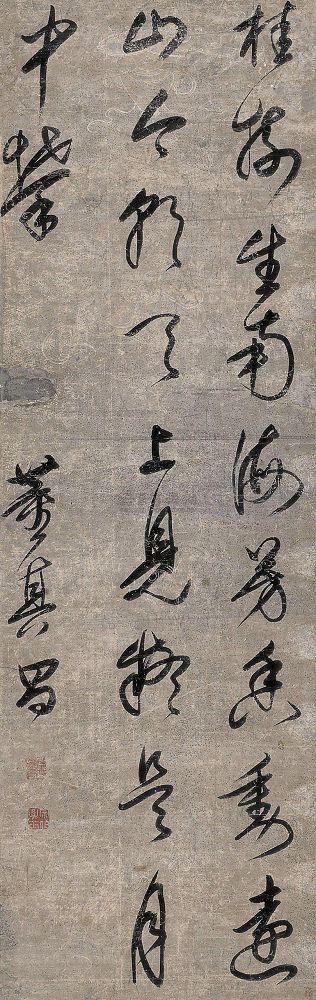 桂樹生南海芳香遠
山今朝天上見疑是月
中攀
董其昌